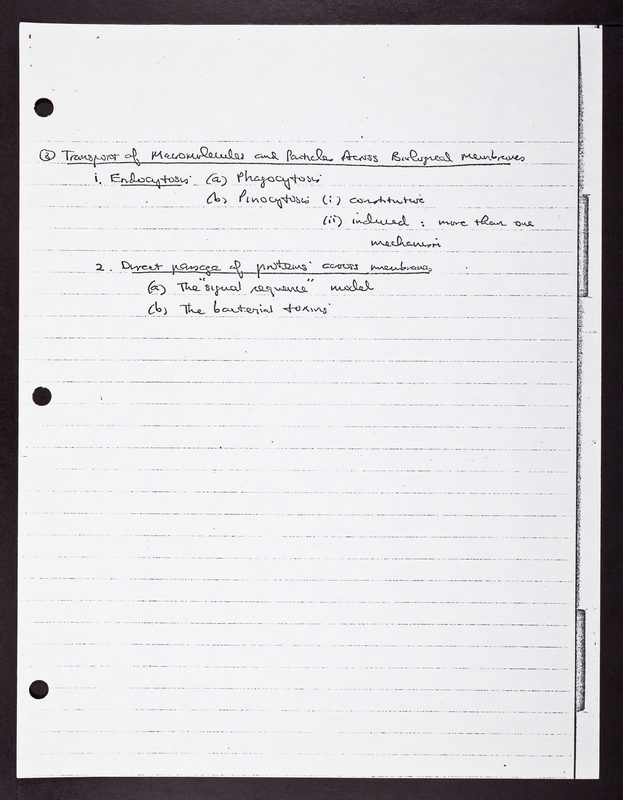 ③ Transport of Macromolecules and Particles Across Biological Membranes
1. Endocytosis (a) Phagocytosis
(b) Pinocytosis (i) constitutive
(ii) induced : more than one
mechanism
2. Direct passage of proteins across membranes
(a) The "signal sequence" model
(b) The bacterial toxins